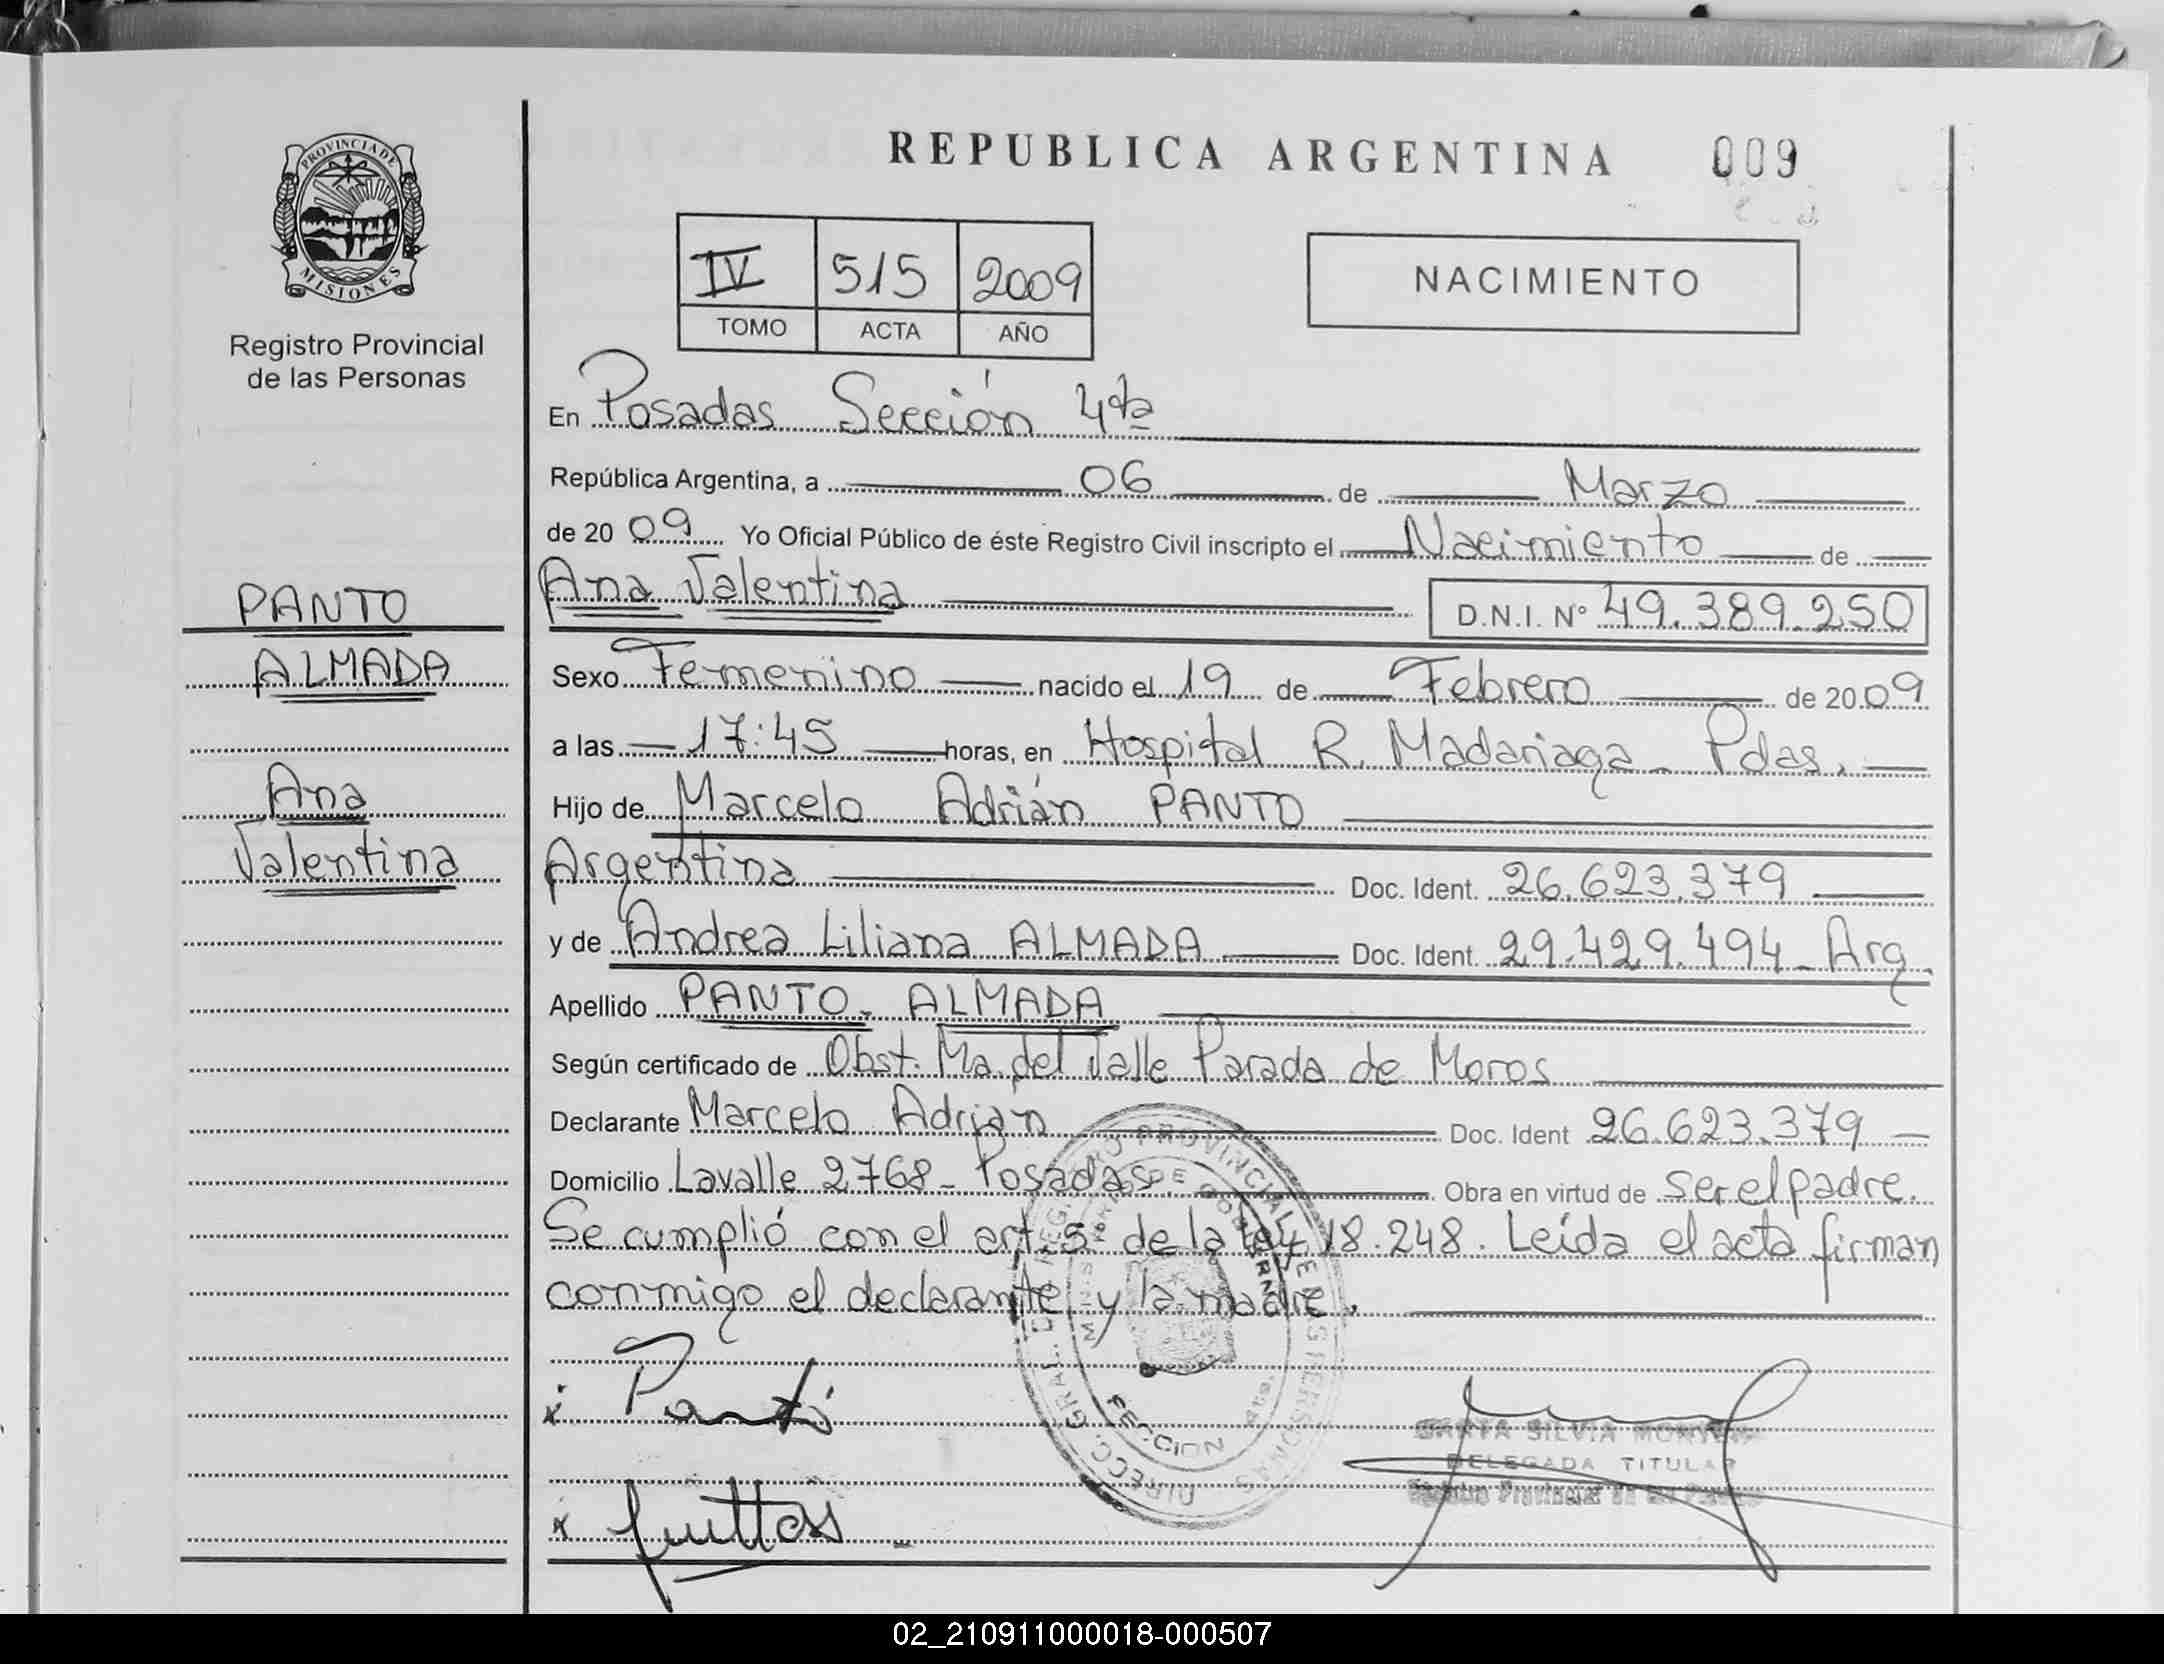 REPUBLICA ARGENTINA 009
PROVINCIA DE
MISIONES
Registro Provincial
de las Personas
IV 515 2009
TOMO ACTA AÑO
NACIMIENTO
En Posadas Sección 4ta
República Argentina, a 06 de Marzo
de 2009 Yo Oficial Público de éste Registro Civil inscripto el Nacimiento de
PANTO
ALMADA
Ana
Valentina
Ana Valentina D.N.I. Nº 49.389.250
Sexo Femenino nacido el 19 de Febrero de 2009
a las 17:45 horas, en Hospital R. Madariaga - Pdas.
Hijo de Marcelo Adrián PANTO
Argentina Doc. Ident. 26.623.379
y de Andrea Liliana ALMADA Doc. Ident. 29.429.494 - Arg
Apellido PANTO - ALMADA
Según certificado de Obst. Ma. del Valle Parada de Moros
Declarante Marcelo Adrián Doc. Ident 26.623.379
Domicilio Lavalle 2768 - Posadas Obra en virtud de ser el padre.
Se cumplió con el art. 5 de la ley 18.248. Leída el acta firman
conmigo el declarante y la madre.
SILVIA
DELEGADA TITULAR
02_210911000018-000507